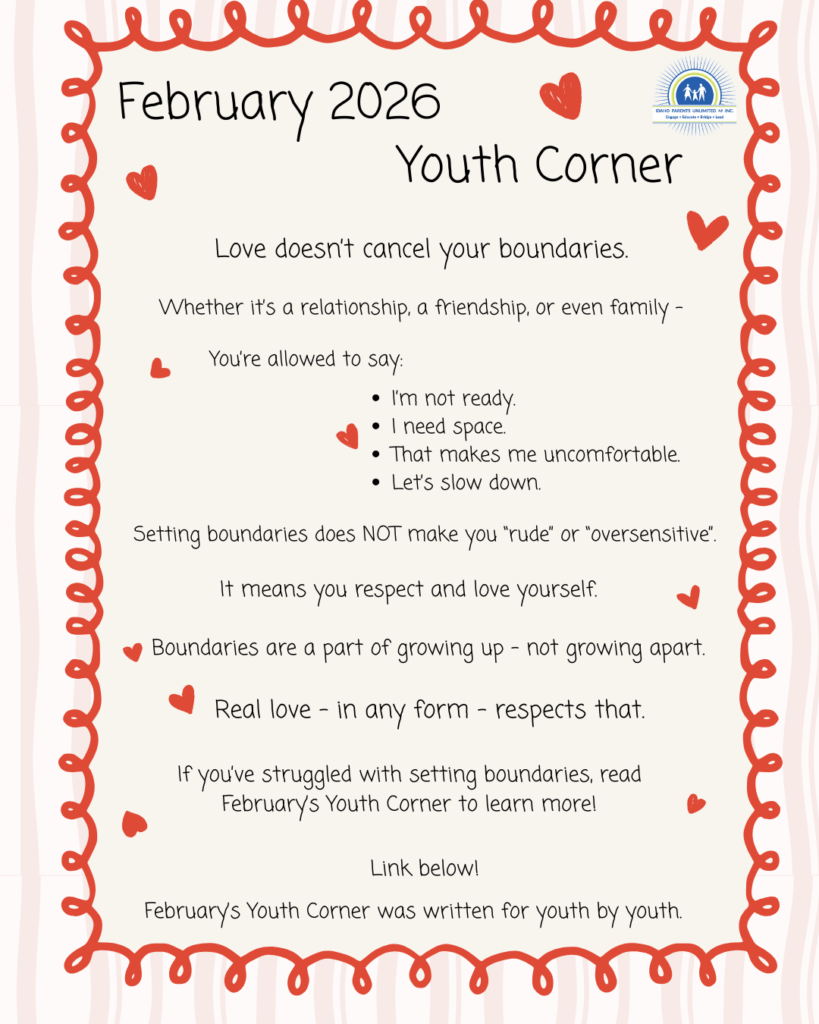 February 2026
IDAHO PARENTS UNLIMITED INC.
Engage • Educate • Bridge • Lead
Youth Corner
Love doesn't cancel your boundaries.
Whether it's a relationship, a friendship, or even family -
You're allowed to say:
• I'm not ready.
• I need space.
• That makes me uncomfortable.
• Let's slow down.
Setting boundaries does NOT make you "rude" or "oversensitive".
It means you respect and love yourself.
Boundaries are a part of growing up - not growing apart.
Real love - in any form - respects that.
If you've struggled with setting boundaries, read
February's Youth Corner to learn more!
Link below!
February's Youth Corner was written for youth by youth.